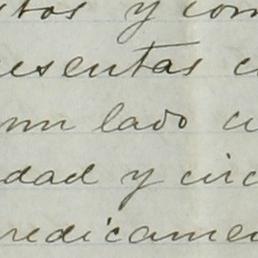 stos y com
resentas c
un lado c
dad y circ
redicame